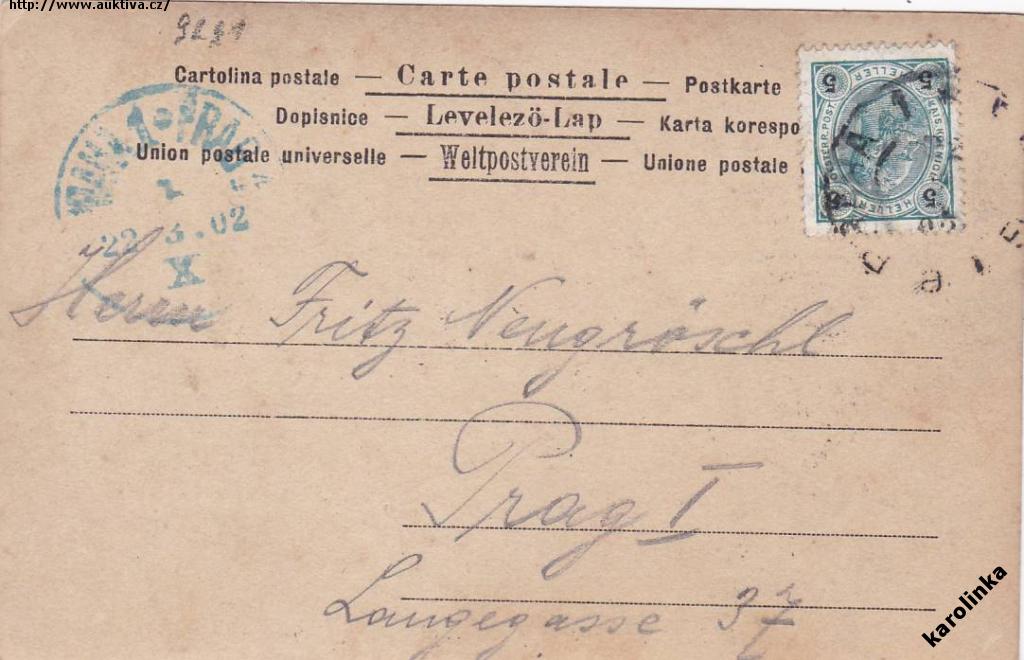 http://www.auktiva.cz/
Cartolina postale — Carte postale — Postkarte
Dopisnice — Levelező-Lap — Karta korespo
Union postale universelle — Weltpostverein — Unione postale
5 HELLER 5
5 HELLER 5
22 3.02
X
Herrn Fritz Neugröschl
Prag I
Langegasse 37
karolinka